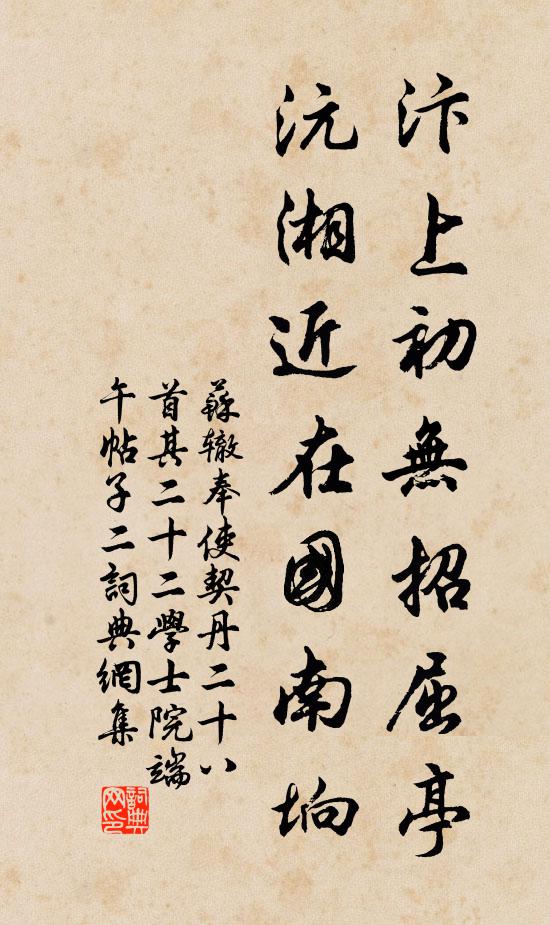 汴上初無招屈亭
沅湘近在國南坰
蘇轍奉使契丹二十八
首其二十二學士院端
午帖子二詞典網集
詞典網印